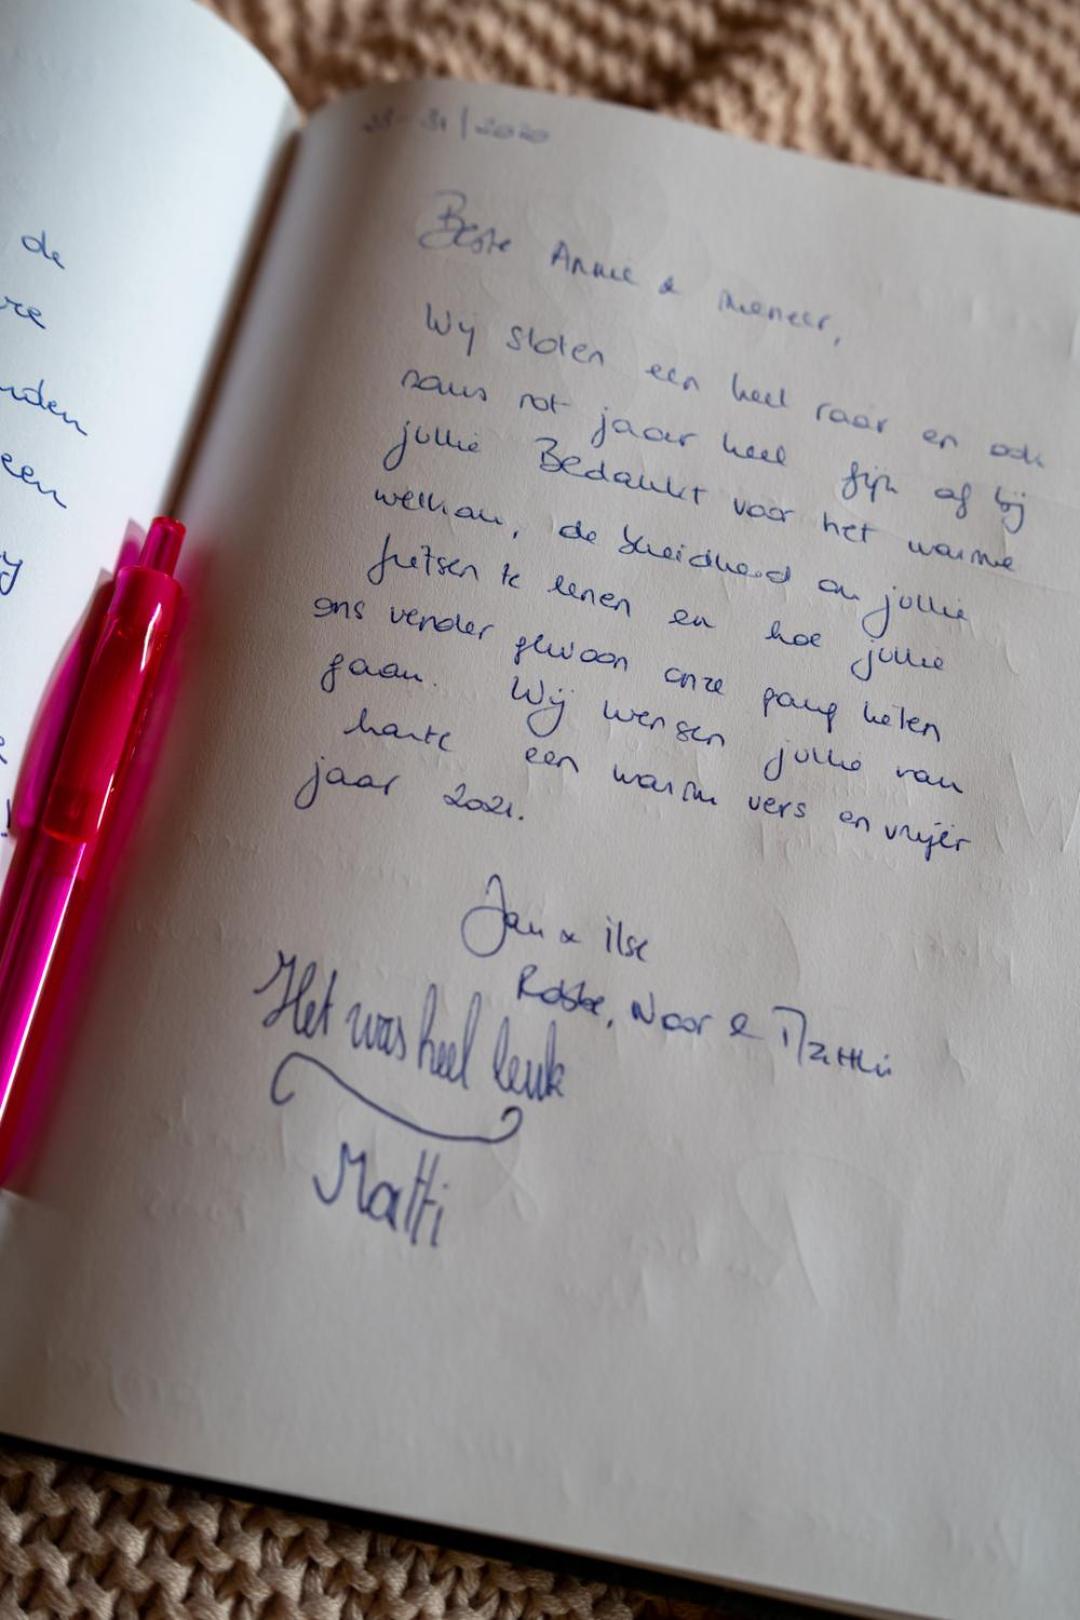 de
re
nden
een
y
28-31/2020
Beste Annie & meneer,
Wij sloten een heel raar en ook
soms rot jaar heel fijn af bij
jullie Bedankt voor het warme
welkom, de bereidheid om jullie
fietsen te lenen en hoe jullie
ons verder gewoon onze gang lieten
gaan. Wij wensen jullie van
harte een warm vers en vrijer
jaar 2021.
Jan & ilse
Robbe, Noor & Matti
Het was heel leuk
Matti